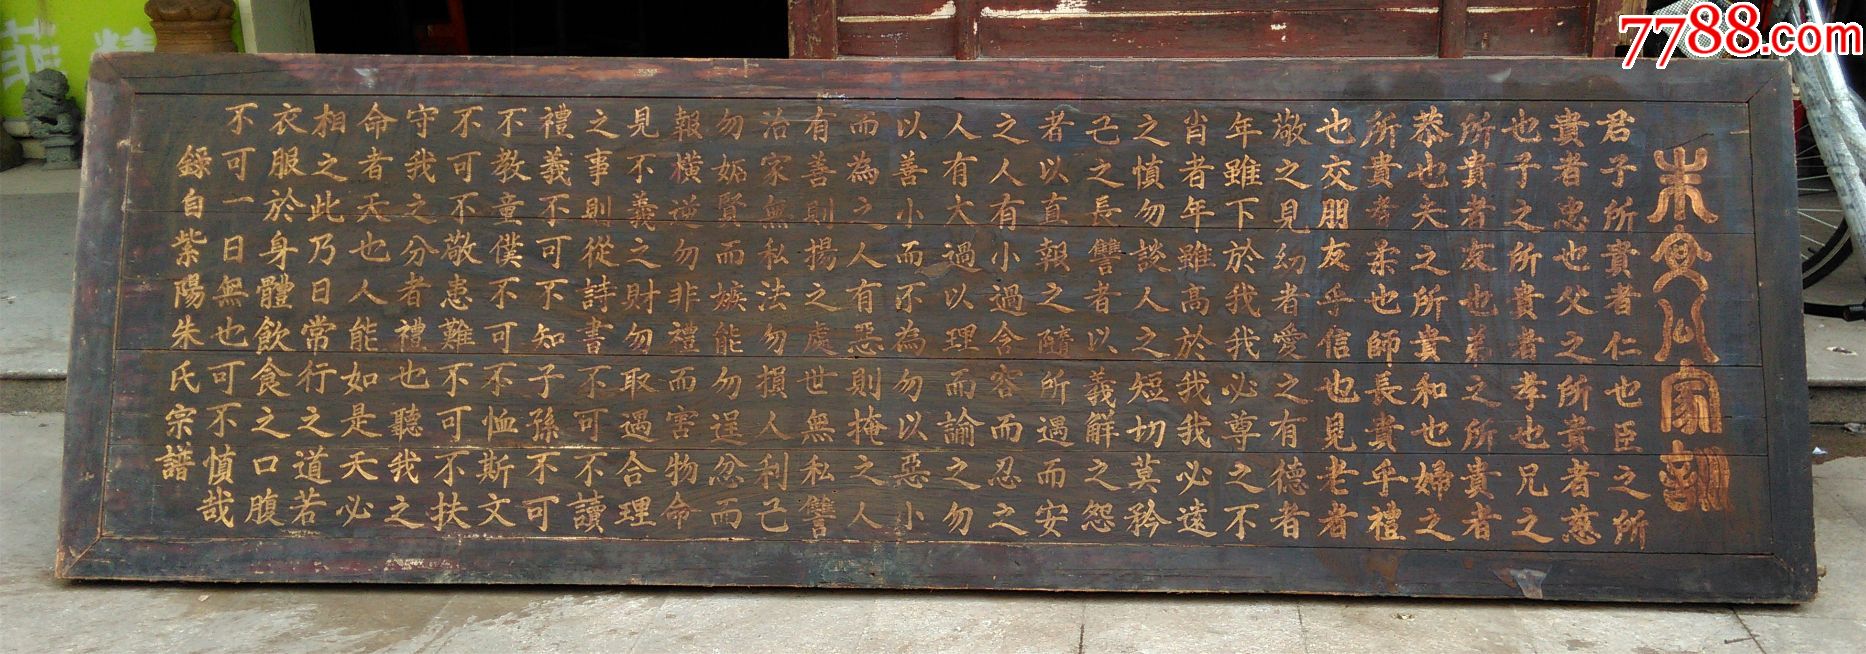 7788.com
朱文公家訓
君子所貴者仁也臣之所
貴者忠也父之所貴者慈
也子之所貴者孝也兄之
所貴者友也弟之所貴者
恭也夫之所貴和也婦之
所貴者柔也師長貴乎禮
也交朋友乎信也見老者
敬之見幼者愛之有德者
年雖下於我我必尊之不
肖者年雖高於我我必遠
之慎勿談人之短切莫矜
己之長讐者以義解之怨
者以直報之隨所遇而安
之人有小過含容而忍之
人有大過以理而諭之勿
以善小而不為勿以惡小
而為之人有惡則掩之人
有善則揚之處世無私讐
治家無私法勿損人利己
勿妬賢而嫉能勿逞忿而
報橫逆勿非禮而害物命
見不義之財勿取遇合理
之事則從詩書不可不讀
禮義不可不知子孫不可
不教童僕不可不恤斯文
不可不敬患難不可不扶
守我之分者禮也聽我之
命者天也人能如是天必
相之此乃日常行之道若
衣服於身體飲食之口腹
不可一日無也可不慎哉
錄自紫陽朱氏宗譜